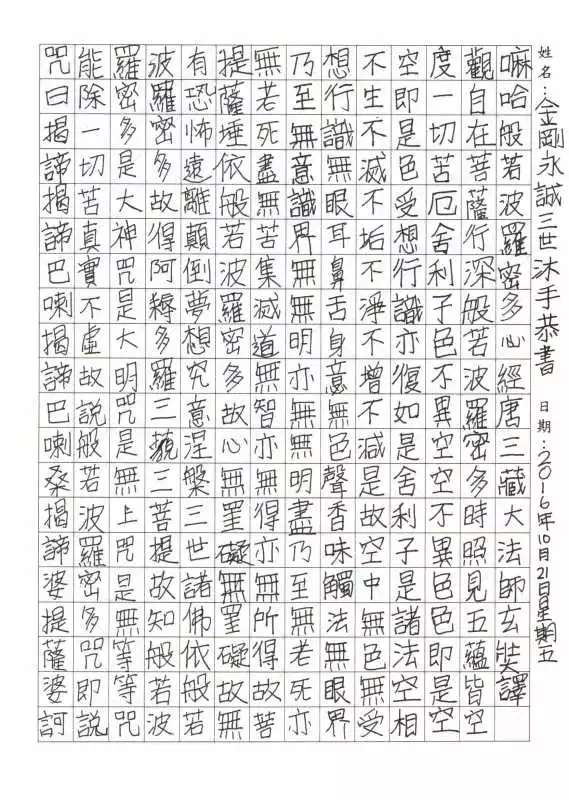 姓名：金剛永誠三世沐手恭書 日期：2016年10月21日星期五
嘛哈般若波羅密多心經唐三藏大法師玄奘譯
觀自在菩薩行深般若波羅密多時照見五蘊皆空
度一切苦厄舍利子色不異空空不異色色即是空
空即是色受想行識亦復如是舍利子是諸法空相
不生不滅不垢不淨不增不減是故空中無色無受
想行識無眼耳鼻舌身意無色聲香味觸法無眼界
乃至無意識界無無明亦無無明盡乃至無老死亦
無老死盡無苦集滅道無智亦無得亦無所得故菩
提薩埵依般若波羅密多故心無罣礙無罣礙故無
有恐怖遠離顛倒夢想究意涅槃三世諸佛依般若
波羅密多故得阿耨多羅三藐三菩提故知般若波
羅密多是大神咒是大明咒是無上咒是無等等咒
能除一切苦真實不虛故說般若波羅密多咒即說
咒曰揭諦揭諦巴喇揭諦巴喇桑揭諦婆提薩婆訶